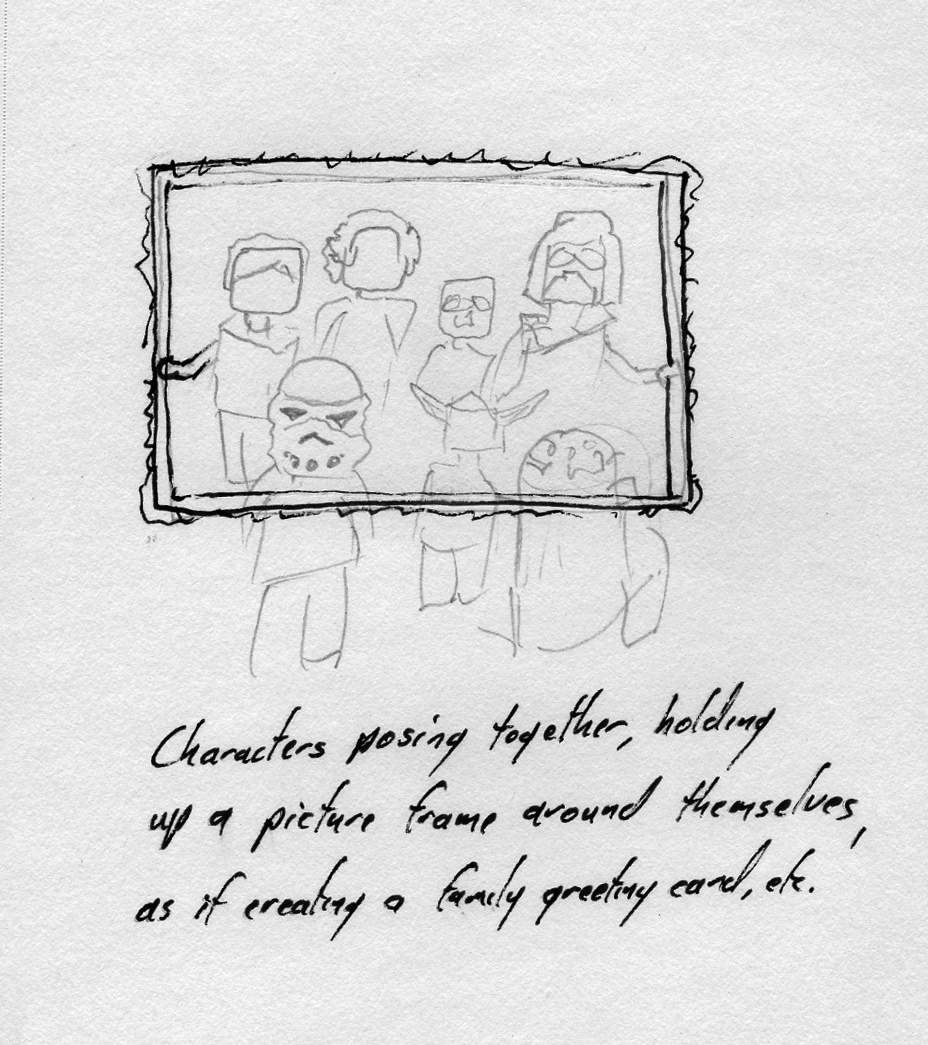 Characters posing together, holding
up a picture frame around themselves,
as if creating a family greeting card, etc.